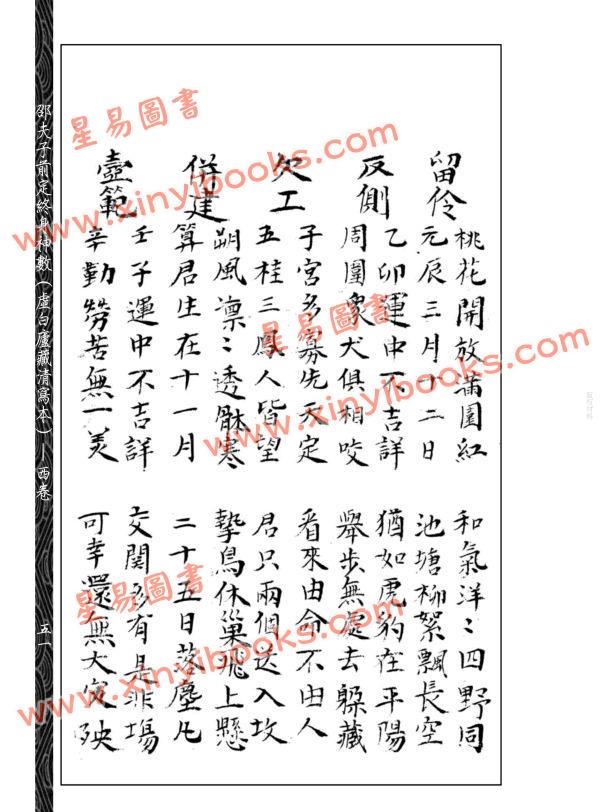 留伶
桃花開放滿園紅 和氣洋〻四野同
元辰三月十二日 池塘柳絮飄長空
反側
乙卯運中不吉詳 猶如虎豹在平陽
周圍衆犬俱相咬 舉步無處去躲藏
欠工
子宮多寡先天定 看來由命不由人
五桂三鳳人皆望 君只兩個送入坟
併建
朔風凛〻透骵寒 鷙鳥休巢飛上懸
算君生在十一月 二十五日落塵凡
壼範
壬子運中不吉詳 交関多有是非塲
辛勤勞苦無一美 可幸還無大災殃
邵夫子前定終身神數（虛白廬藏清寫本）—西卷
五一
星易圖書
www.xinyibooks.com
星易圖書
www.xinyibooks.com
星易圖書
www.xinyibooks.com